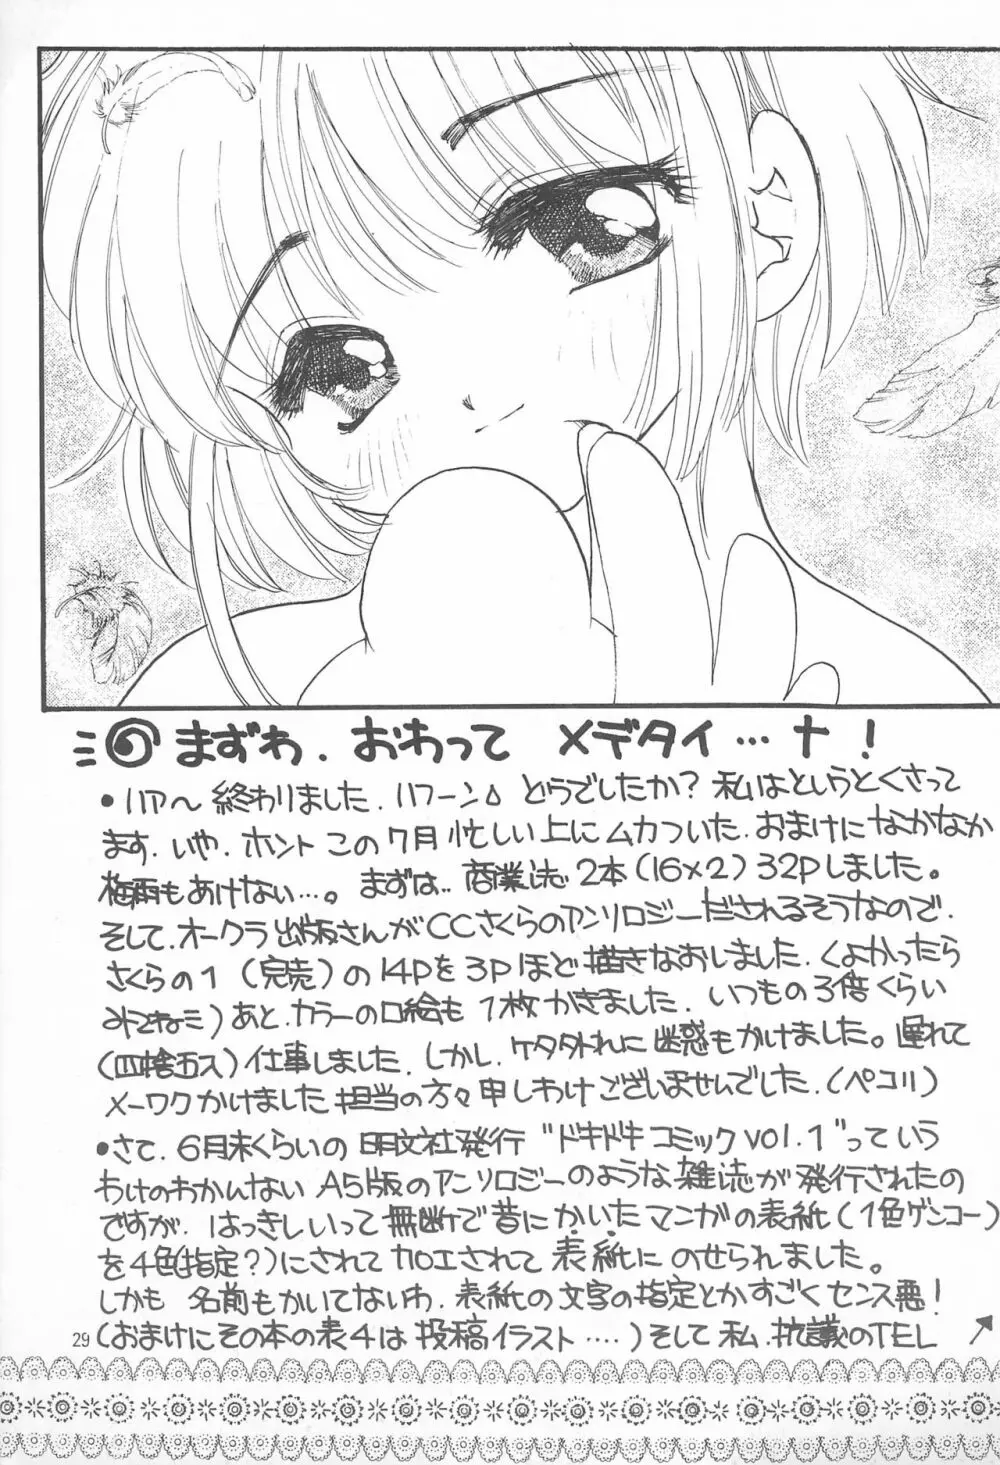 まずわ．おわって メデタイ…ナ！
•ハア〜 終わりました．ハフーン△ どうでしたか？私はというとくさって
ます．いや．ホント この7月 忙しい上にムカついた．おまけになかなか
梅雨もあけない…。まずは．商業誌2本(16×2)32Pしました。
そして．オークラ出版さんがCCさくらのアンソロジーだされるそうなので．
さくらの1（完売）の14Pを3Pほど描きなおしました．くよかったら
みてねミ）あと．カラーの口絵も1枚かきました．いつもの3倍くらい
(四捨五入)仕事しました．しかし．ケタ外れに迷惑もかけました。遅れて
メーワクかけました担当の方々申しわけございませんでした．(ペコリ)
•さて．6月末くらいの 日明文社発行 "ドキドキコミックvol.1"っていう
わけのわかんない A5版のアンソロジーのような雑誌が発行されたの
ですが．はっきしいって無断で昔にかいたマンガの表紙(1色ゲンコー)
を4色(指定？)にされて加工されて表紙にのせられました。
しかも 名前もかいてないわ．表紙の文字の指定とかすごくセンス悪！
(おまけにその本の表4は投稿イラスト‥‥)そして私．抗議のTEL
29